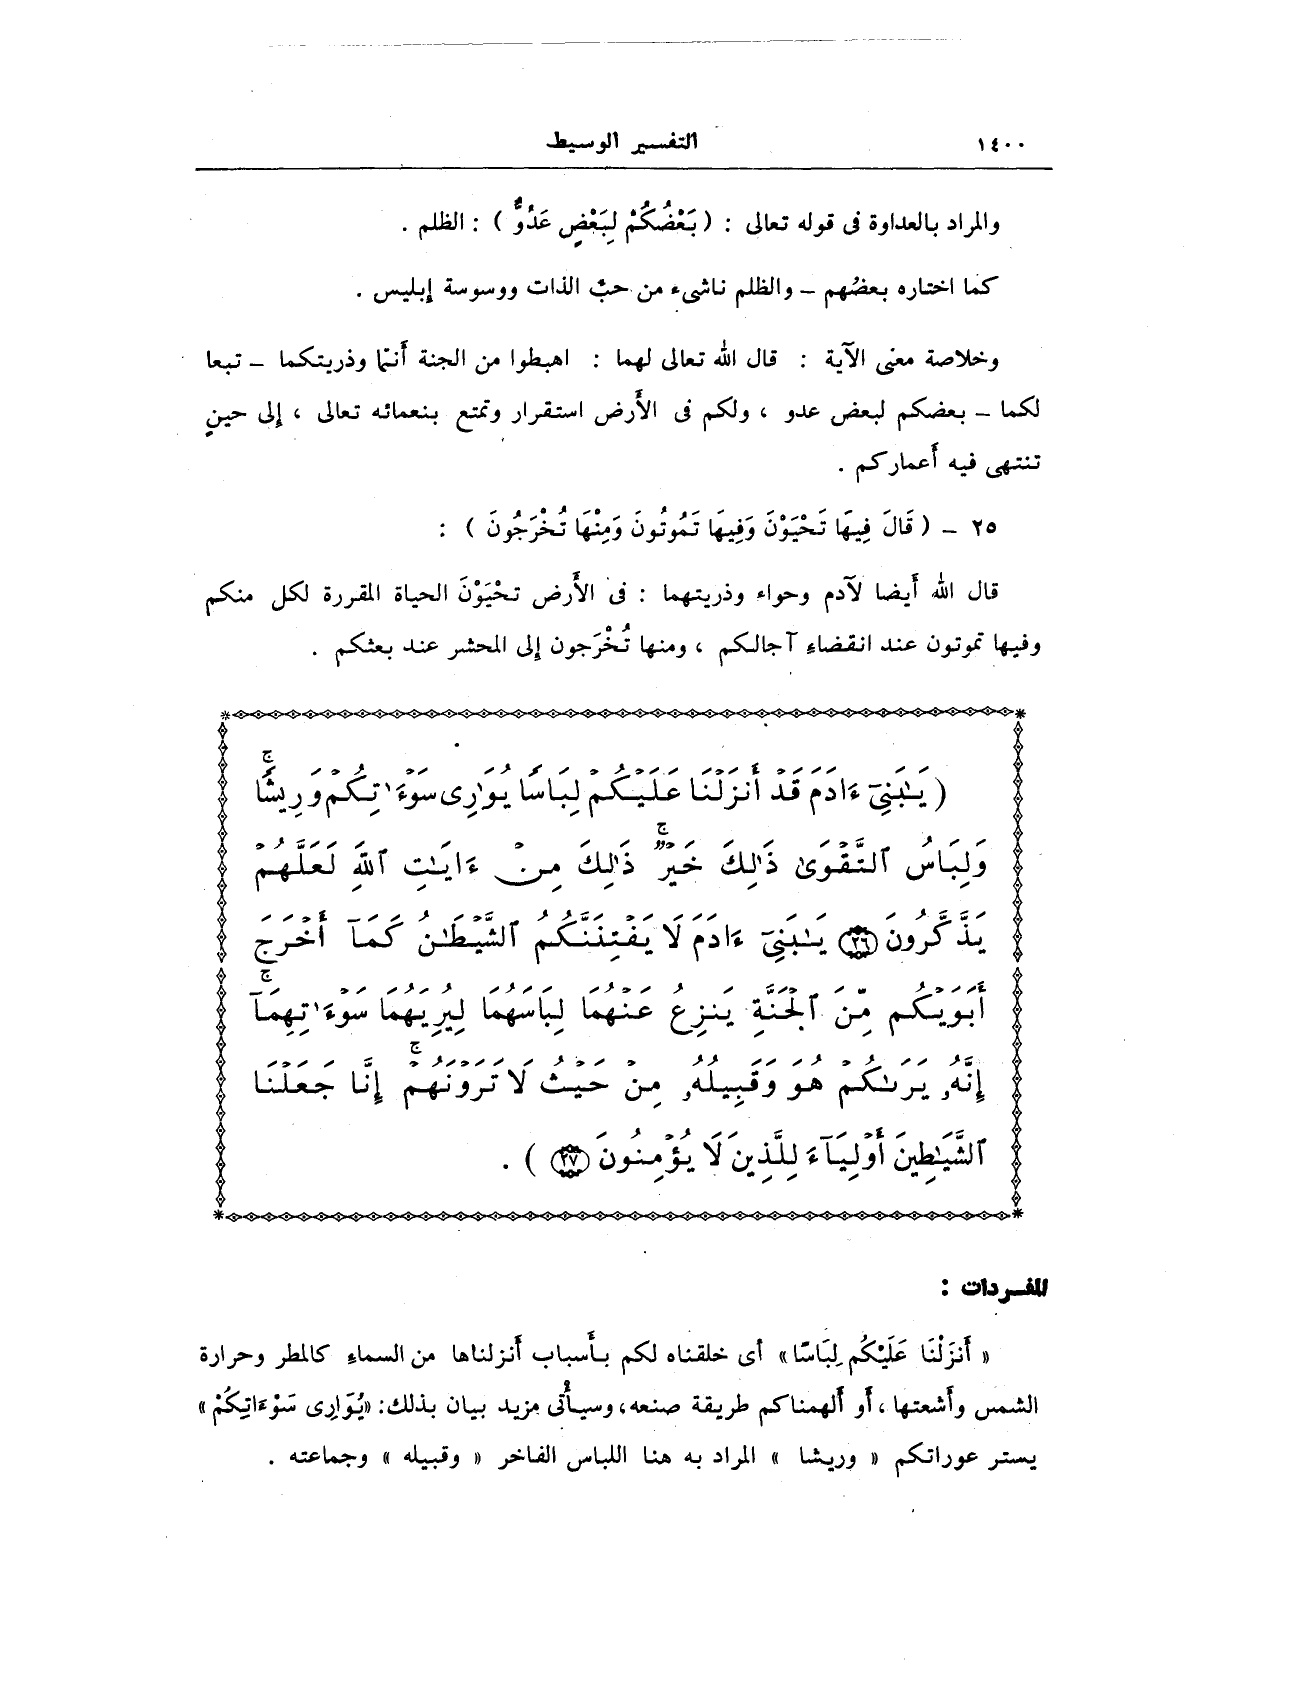 ١٤٠٠ التفسير الوسيط
والمراد بالعداوة فى قوله تعالى : ( بَعْضُكُمْ لِبَعْضٍ عَدُوٌّ ) : الظلم .
كما اختاره بعضُهم – والظلم ناشىء من حبّ الذات ووسوسة إبليس .
وخلاصة معنى الآية : قال الله تعالى لهما : اهبطوا من الجنة أَنتما وذريتكما – تبعا
لكما – بعضكم لبعض عدو ، ولكم فى الأَرض استقرار وتمتع بنعمائه تعالى ، إلى حينٍ
تنتهى فيه أَعماركم .
٢٥ – ( قَالَ فِيهَا تَحْيَوْنَ وَفِيهَا تَمُوتُونَ وَمِنْهَا تُخْرَجُونَ ) :
قال الله أَيضا لآدم وحواء وذريتهما : فى الأَرض تحْيَوْنَ الحياة المقررة لكل منكم
وفيها تموتون عند انقضاءِ آجالكم ، ومنها تُخْرَجون إلى المحشر عند بعثكم .
( يَـٰبَنِىٓ ءَادَمَ قَدْ أَنزَلْنَا عَلَيْكُمْ لِبَاسًا يُوَٰرِى سَوْءَٰتِكُمْ وَرِيشًا ۖ
وَلِبَاسُ ٱلتَّقْوَىٰ ذَٰلِكَ خَيْرٌ ۚ ذَٰلِكَ مِنْ ءَايَـٰتِ ٱللَّهِ لَعَلَّهُمْ
يَذَّكَّرُونَ ۝٢٦ يَـٰبَنِىٓ ءَادَمَ لَا يَفْتِنَنَّكُمُ ٱلشَّيْطَـٰنُ كَمَآ أَخْرَجَ
أَبَوَيْكُم مِّنَ ٱلْجَنَّةِ يَنزِعُ عَنْهُمَا لِبَاسَهُمَا لِيُرِيَهُمَا سَوْءَٰتِهِمَآ ۚ
إِنَّهُۥ يَرَىٰكُمْ هُوَ وَقَبِيلُهُۥ مِنْ حَيْثُ لَا تَرَوْنَهُمْ ۗ إِنَّا جَعَلْنَا
ٱلشَّيَـٰطِينَ أَوْلِيَآءَ لِلَّذِينَ لَا يُؤْمِنُونَ ۝٢٧ ) .
المفـردات :
« أَنزَلْنَا عَلَيْكُم لِبَاسًا» أى خلقناه لكم بأَسباب أَنزلناها من السماءِ كالمطر وحرارة
الشمس وأَشعتها ، أَو أَلهمناكم طريقة صنعه، وسيأْتى مزيد بيان بذلك: «يُوَارِى سَوْءَاتِكُمْ»
يستر عوراتكم « وريشا » المراد به هنا اللباس الفاخر « وقبيله » وجماعته .